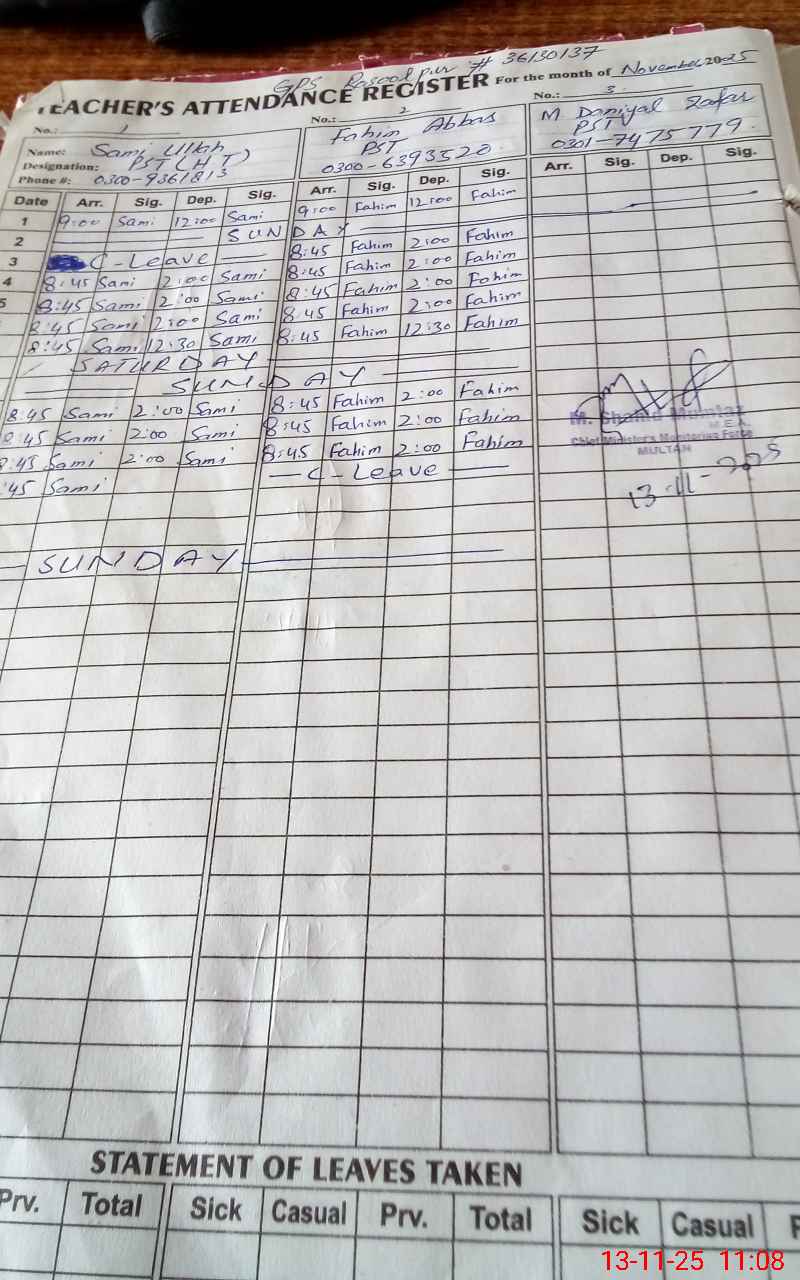 GPS Rasoolpur # 36130137
TEACHER'S ATTENDANCE REGISTER For the month of November 2025
No.: 1 No.: 2 No.: 3
Name: Sami Ullah Fahim Abbas M Daniyal Zafar
Designation: PST (H T) PST PST
Phone #: 0300-9361813 0300-6393520 0301-7475779
Date Arr. Sig. Dep. Sig. Arr. Sig. Dep. Sig. Arr. Sig. Dep. Sig.
1 9:00 Sami 12:00 Sami 9:00 Fahim 12:00 Fahim
2 SUNDAY
3 C-Leave 8:45 Fahim 2:00 Fahim
4 8:45 Sami 2:00 Sami 8:45 Fahim 2:00 Fahim
5 8:45 Sami 2:00 Sami 8:45 Fahim 2:00 Fahim
8:45 Sami 2:00 Sami 8:45 Fahim 2:00 Fahim
8:45 Sami 12:30 Sami 8:45 Fahim 12:30 Fahim
SATURDAY
SUNDAY
8:45 Sami 2:00 Sami 8:45 Fahim 2:00 Fahim
8:45 Sami 2:00 Sami 8:45 Fahim 2:00 Fahim
8:45 Sami 2:00 Sami 8:45 Fahim 2:00 Fahim
:45 Sami C-Leave
SUNDAY
M. Shahid Mumtaz
M.E.A.
Chief Minister's Monitoring Force
MULTAN
13-11-2025
STATEMENT OF LEAVES TAKEN
Prv. Total Sick Casual Prv. Total Sick Casual P
13-11-25 11:08